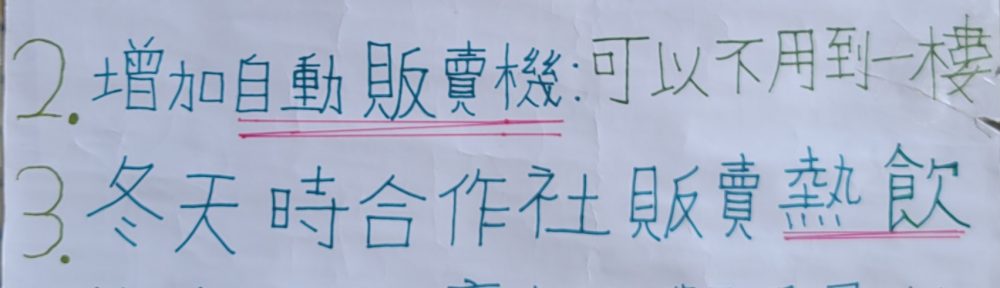 2. 增加自動販賣機:可以不用到一樓
3. 冬天時合作社販賣熱飲